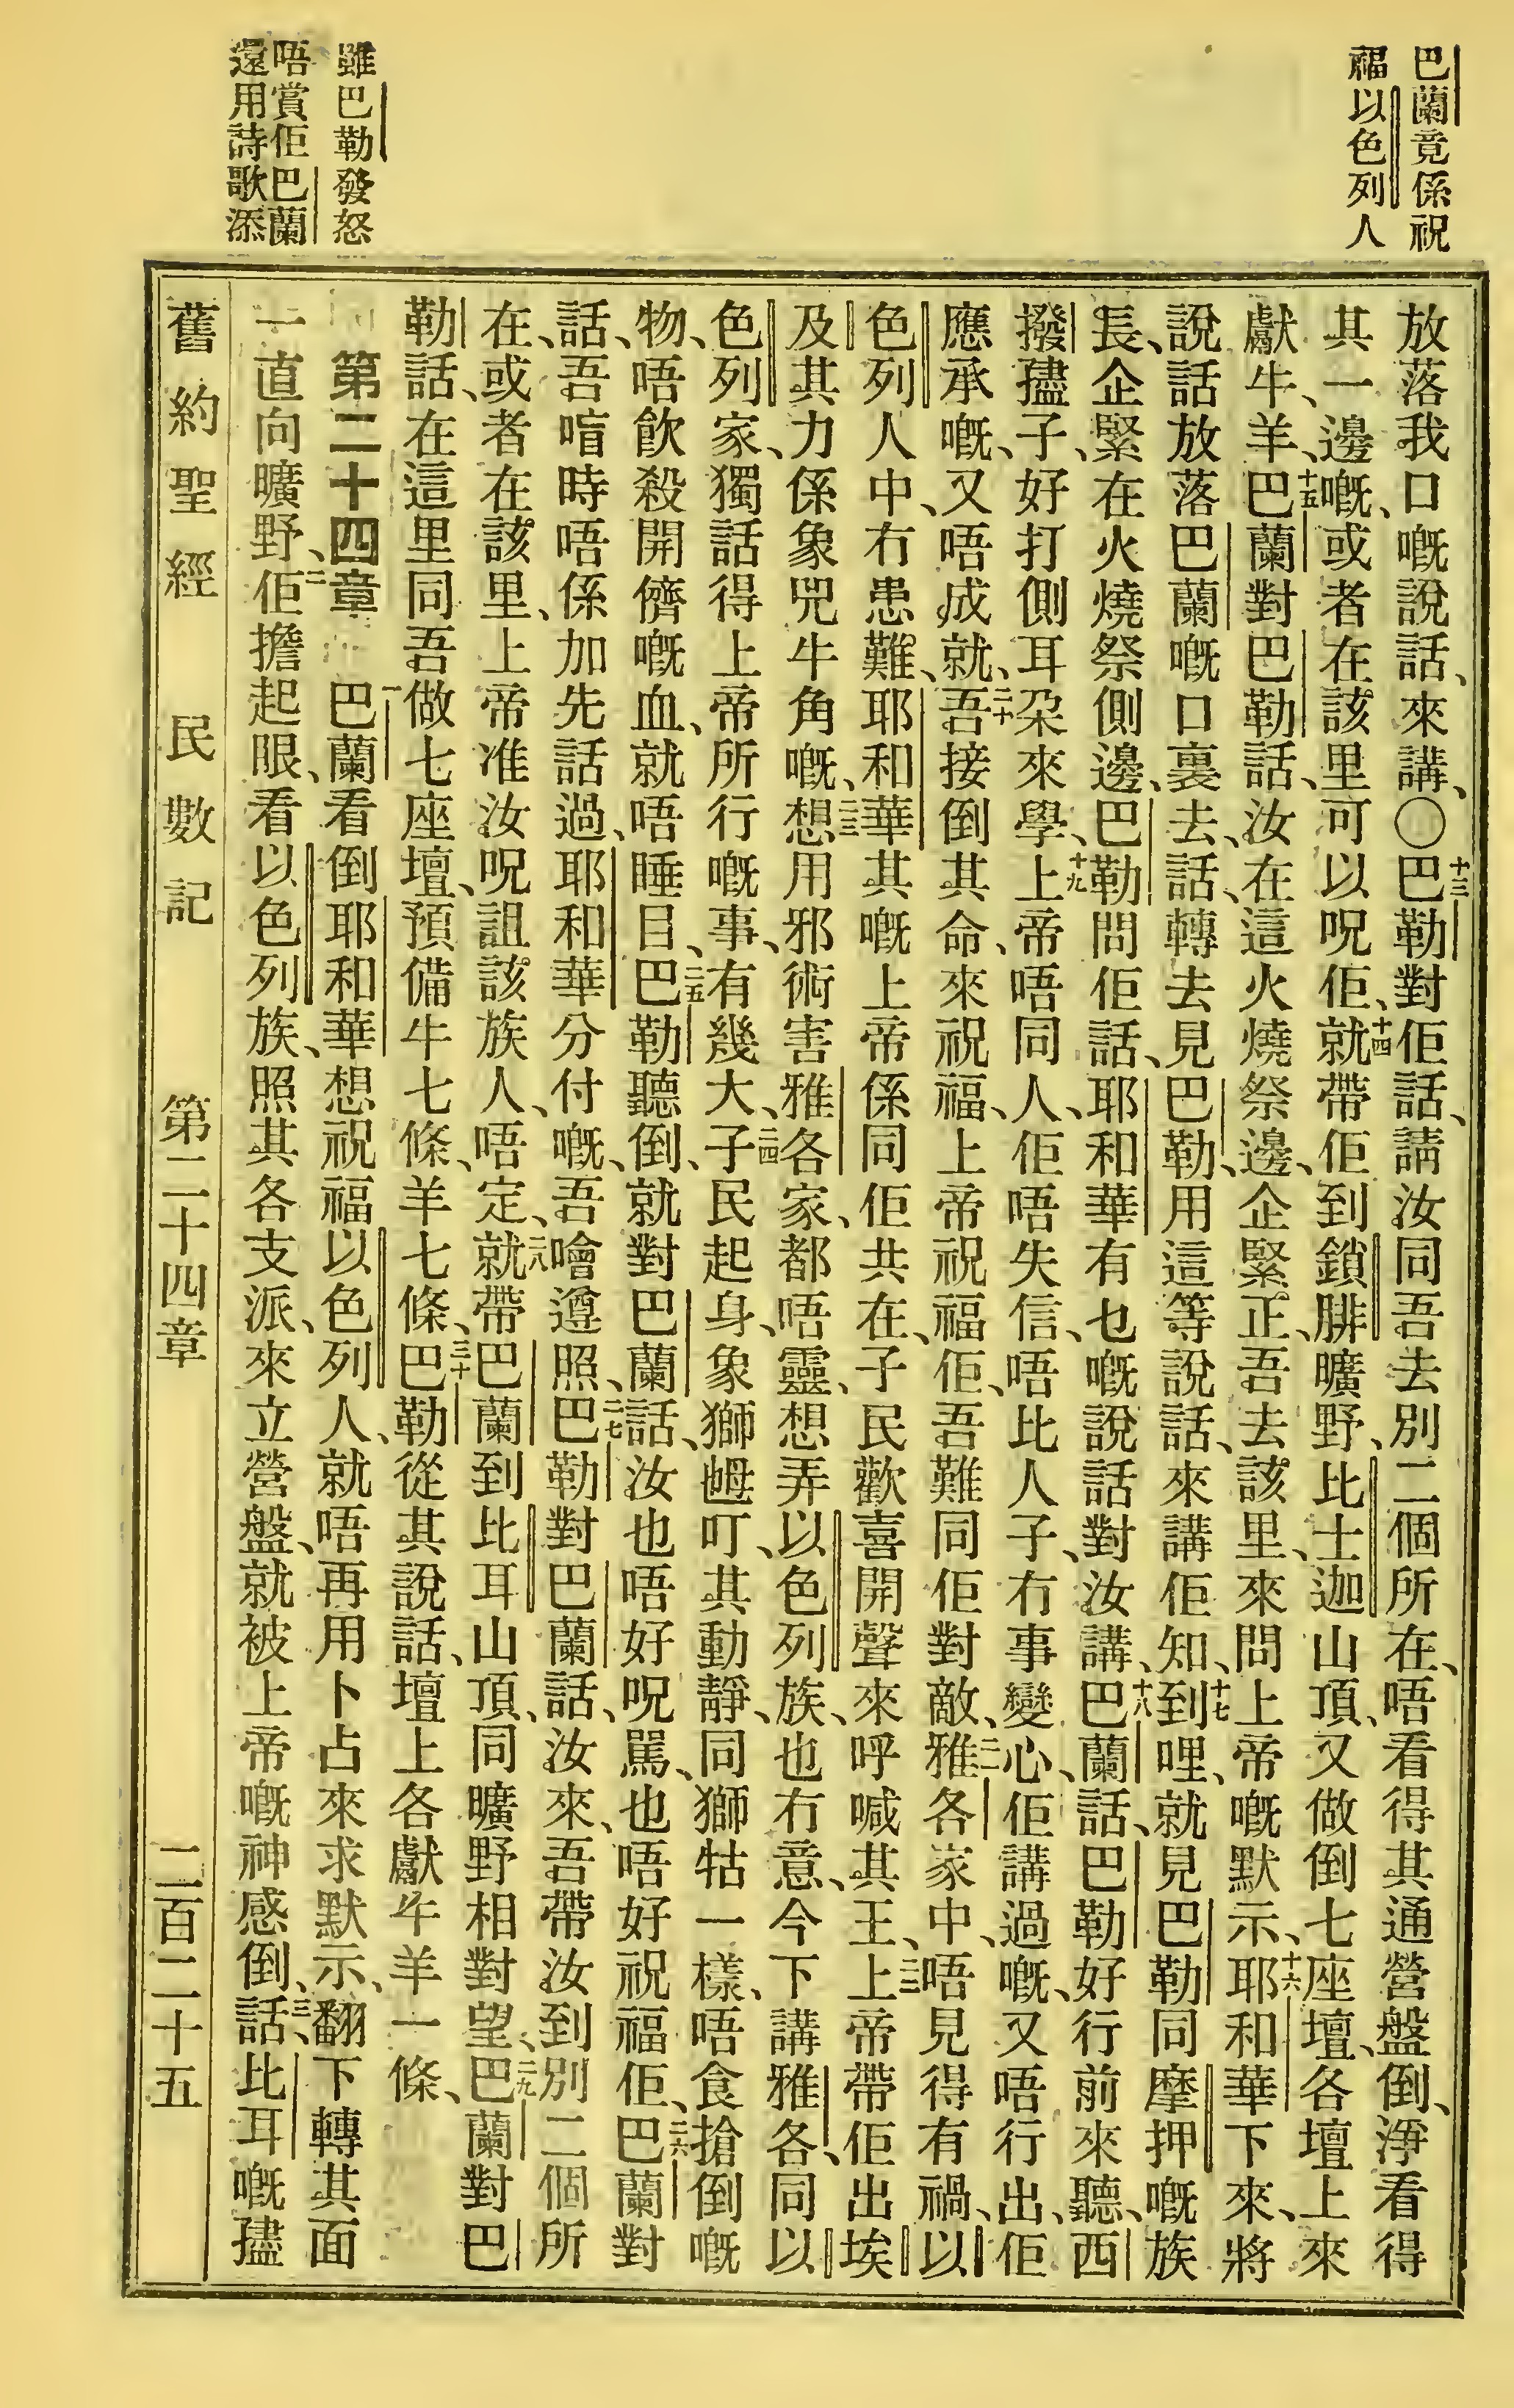 巴蘭竟係祝
福以色列人
雖巴勒發怒
唔賞佢巴蘭
還用詩歌添
放落我口嘅說話、來講、○十三巴勒對佢話、請汝同吾去別二個所在、唔看得其通營盤倒、淨看得
其一邊嘅、或者在該里可以呪佢、十四就帶佢到鎖腓曠野、比士迦山頂、又做倒七座壇、各壇上來
獻牛、羊、十五巴蘭對巴勒話、汝在這火燒祭邊、企緊、正吾去該里、來問上帝嘅默示、十六耶和華下來、將
說話放落巴蘭嘅口裏去、話、轉去見巴勒、用這等說話、來講佢知、十七到哩、就見巴勒同摩押嘅族
長、企緊在火燒祭側邊、巴勒問佢話、耶和華有乜嘅說話對汝講、十八巴蘭話、巴勒好行前來聽、西
撥孻子、好打側耳朶來學、十九上帝唔同人、佢唔失信、唔比人子、冇事變心、佢講過嘅、又唔行出、佢
應承嘅、又唔成就、二十吾接倒其命、來祝福、上帝祝福佢、吾難同佢對敵、二一雅各家中、唔見得有禍、以
色列人中、冇患難、耶和華其嘅上帝係同佢共在、子民歡喜開聲來呼喊其王、二二上帝帶佢出埃
及、其力係象兕牛角嘅、二三想用邪術害雅各家、都唔靈、想弄以色列族、也冇意、今下講雅各、同以
色列家、獨話得上帝所行嘅事、有幾大、二四子民起身、象獅𡛺叮、其動靜、同獅牯一樣、唔食搶倒嘅
物、唔飲殺開儕嘅血、就唔睡目、二五巴勒聽倒、就對巴蘭話、汝也唔好呪駡、也唔好祝福佢、二六巴蘭對
話、吾㫾時唔係加先話過、耶和華分付嘅、吾噲遵照、二七巴勒對巴蘭話、汝來、吾帶汝到別二個所
在、或者在該里、上帝准汝呪詛該族人、唔定、二八就帶巴蘭到比耳山頂、同曠野相對望、二九巴蘭對巴
勒話、在這里同吾做七座壇、預備牛七條、羊七條、三十巴勒從其說話、壇上各獻牛羊一條、
第二十四章 一巴蘭看倒耶和華想祝福以色列人、就唔再用卜占來求默示、翻下轉其面
一直向曠野、二佢擔起眼、看以色列族、照其各支派、來立營盤、就被上帝嘅神感倒、三話、比耳嘅孻
舊約聖經 民數記 第二十四章 二百二十五